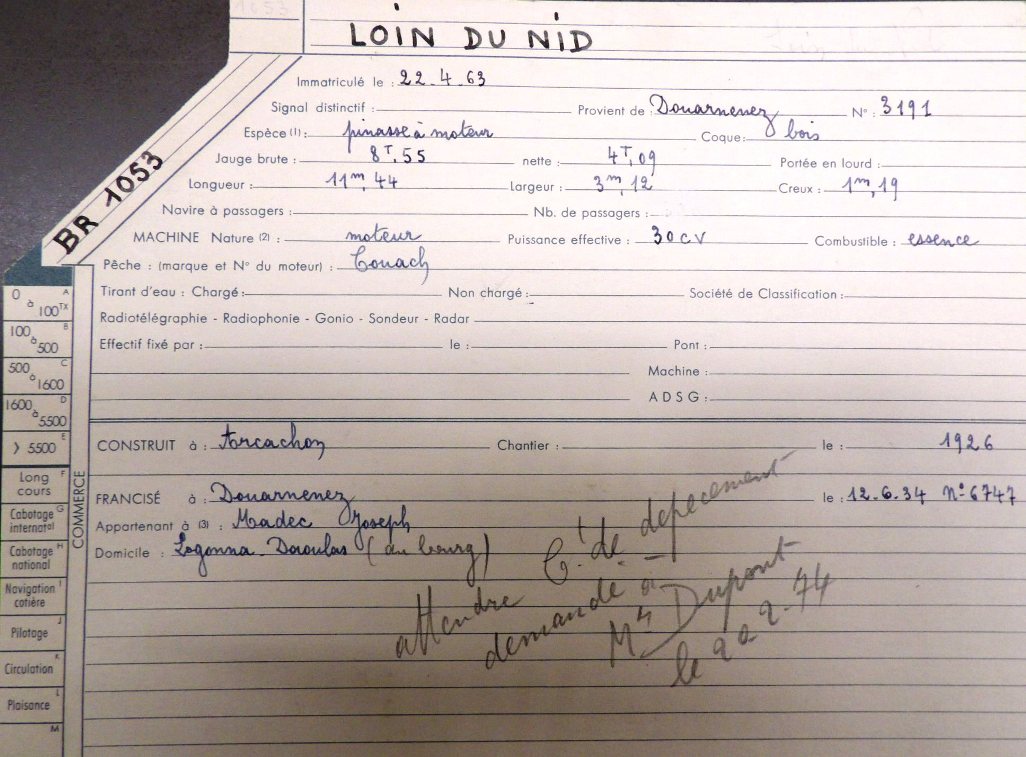 1053
LOIN DU NID
BR 1053
Immatriculé le : 22.4.63
Signal distinctif : Provient de : Douarnenez N° : 3191
Espèce (1) : pinasse à moteur Coque : bois
Jauge brute : 8T,55 nette : 4T,09 Portée en lourd :
Longueur : 11m,44 Largeur : 3m,12 Creux : 1m,19
Navire à passagers : Nb. de passagers :
MACHINE Nature (2) : moteur Puissance effective : 30 CV Combustible : essence
Pêche : (marque et N° du moteur) : Couach
Tirant d'eau : Chargé : Non chargé : Société de Classification :
Radiotélégraphie - Radiophonie - Gonio - Sondeur - Radar
Effectif fixé par : le : Pont :
Machine :
ADSG :
CONSTRUIT à : Arcachon Chantier : le : 1926
FRANCISÉ à : Douarnenez le : 12.6.34 N° 6747
Appartenant à (3) : Madec Joseph
Domicile : Logonna-Daoulas (au bourg)
attendre C.t de depecement
demandé à
Mr Dupont
le 2 0 2-74
0 à 100 TX A
100 à 500 B
500 à 1600 C
1600 à 5500 D
> 5500 E
COMMERCE
Long cours F
Cabotage internatal G
Cabotage national H
Navigation cotière I
Pilotage J
Circulation K
Plaisance L
M